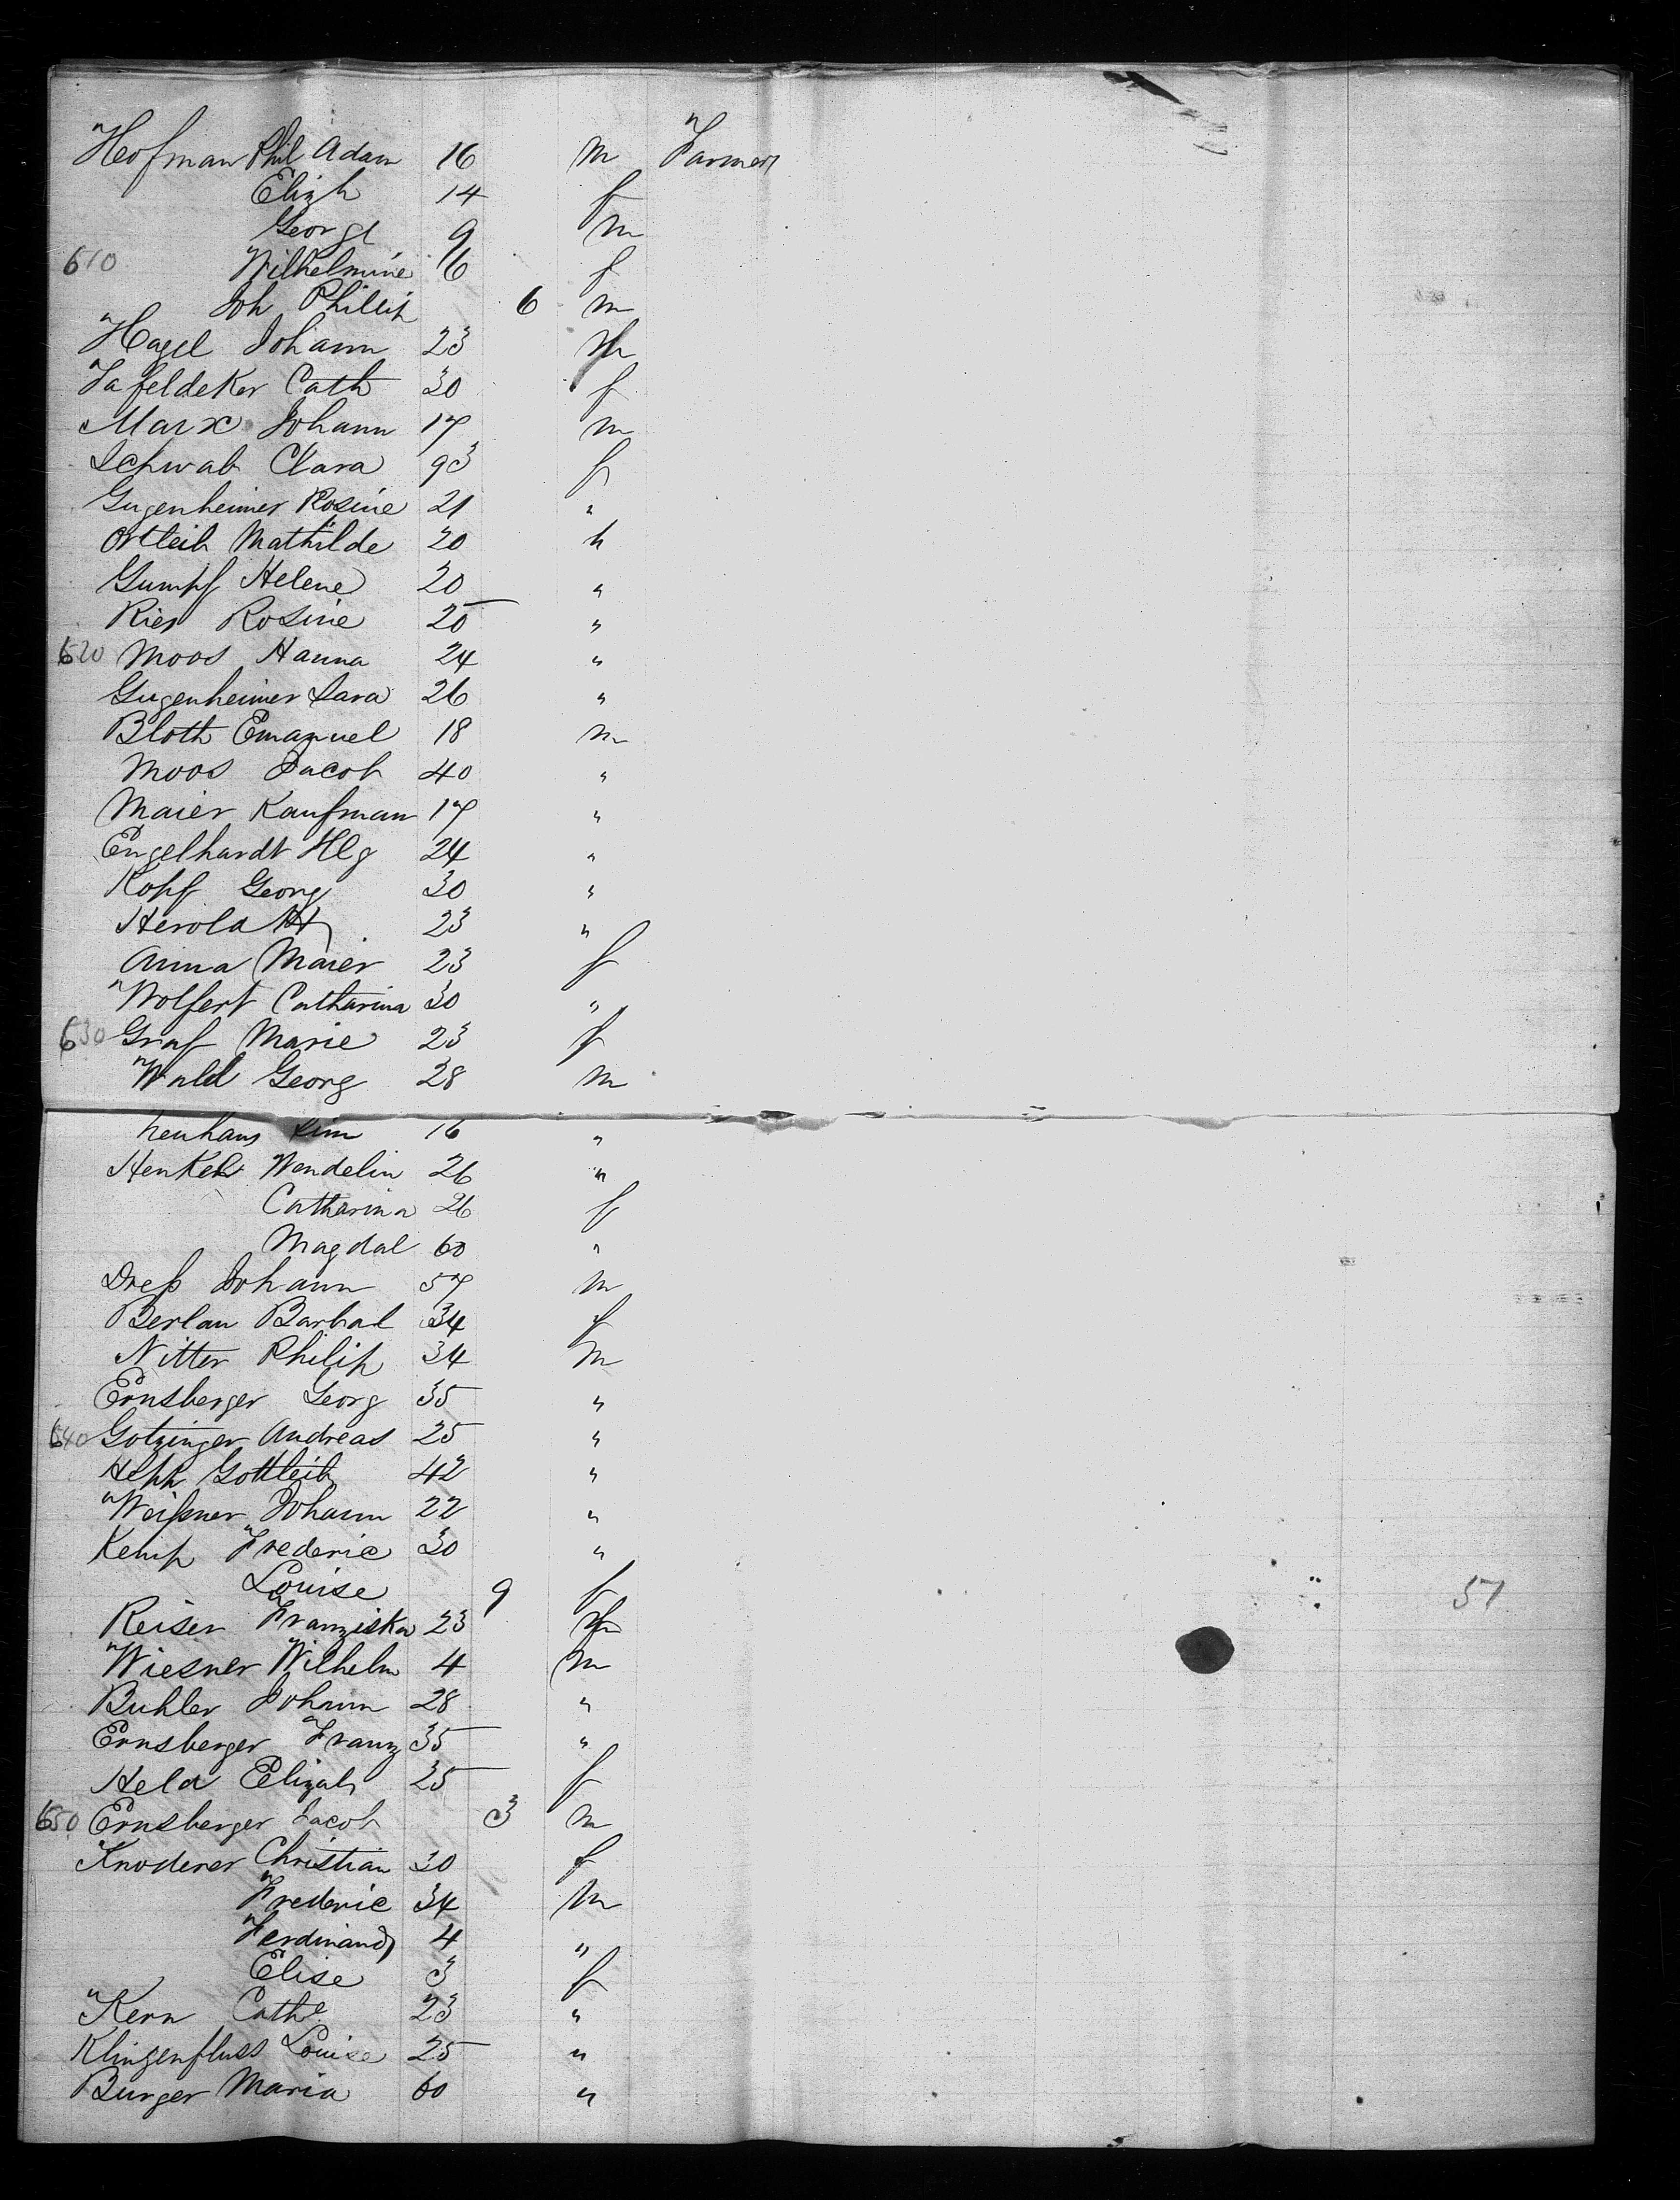 Hofman Phil Adam 16 m Farmer
Elizh 14 f
George 9 m
610 Wilhelmine 6 f
Joh Philip 6 m
Hagel Johann 23 m
Tafeldeker Cath 30 f
Marx Johann 17 m
Schwab Clara 23 f
Gugenheimer Rosine 21 "
Ortleib Mathilde 20 "
Gumpf Helene 20 "
Ries Rosine 25 "
620 Moos Hanna 24 "
Gugenheimer Sara 26 "
Bloth Emanuel 18 m
Moos Jacob 40 "
Maier Kaufman 17 "
Engelhardt Hg 24 "
Kopf Georg 30 "
Herold H 23 "
Anna Maier 23 f
Wolfert Catharina 30 "
630 Graf Marie 23 f
Wald Georg 28 m
Neuhaus 16 "
Henkel Wendelin 26 "
Catharina 26 f
Magdal 60 "
Dreß Johann 57 m
Berlau Barbal 34 f
Nitter Philip 34 m
Ernsberger Georg 35 "
640 Gotzinger Andreas 25 "
Gottleib 42 "
Weißner Johann 22 "
Kemp Frederic 30 "
Louise 9 f
57
Reiser Franziska 23
Wiesner Wilhelm 4 m
Buhler Johann 28 "
Ernsberger Franz 35 "
Held Elizab 25 f
650 Ernsberger Jacob 3 m
Knoderer Christian 30 f
Frederic 34 m
Ferdinand 4 "
Elise 3 f
Kern Cathe 23 "
Klingenfluss Louise 25 "
Burger Maria 60 "